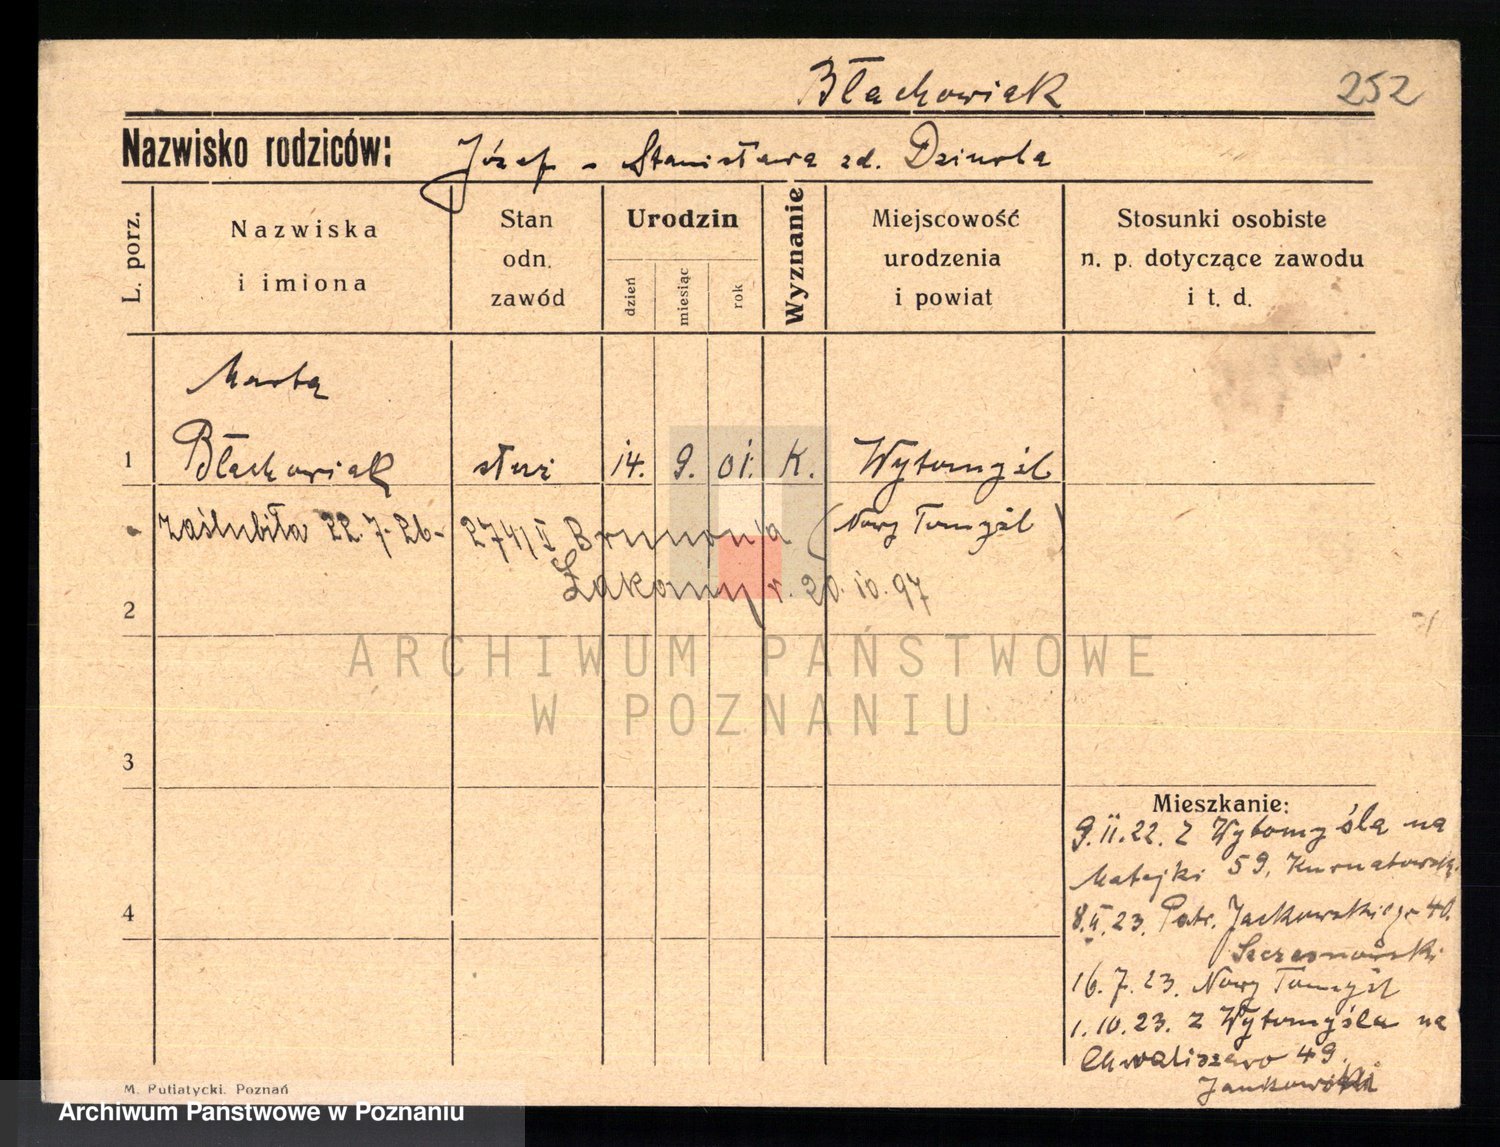 Błachowiak
252
Nazwisko rodziców: Józef - Stanisława zd. Dziurla
L. porz.
Nazwiska
i imiona
Stan
odn.
zawód
Urodzin
dzień
miesiąc
rok
Wyznanie
Miejscowość
urodzenia
i powiat
Stosunki osobiste
n. p. dotyczące zawodu
i t. d.
Marta
1 Błachowiak służ 14. 9. 01. K. Wytomyśl
zaślubiła 22.7.26- 274/II Brunona (Nowy Tomyśl)
Łakomy r. 20.10.97
2
ARCHIWUM PAŃSTWOWE
W POZNANIU
3
4
Mieszkanie:
9.II.22. z Wytomyśla na
Matejki 59, Kurnatowski.
8.V.23. Patr. Jackowskiego 40.
16.7.23. Nowy Tomyśl
1.10.23. z Wytomyśla na
Chwaliszewo 49.
Jankowski
M. Putiatycki. Poznań
Archiwum Państwowe w Poznaniu